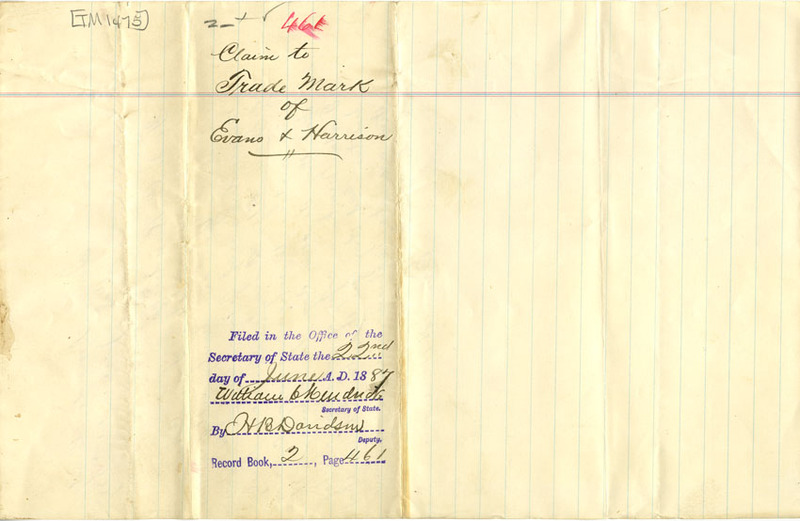 [TM1475]
2 - + ✓ 461
Claim to
Trade Mark
of
Evans & Harrison
Filed in the Office of the
Secretary of State the 22nd
day of June A. D. 1887
William C Hendricks
Secretary of State.
By H B Davidson
Deputy.
Record Book, 2, Page 461